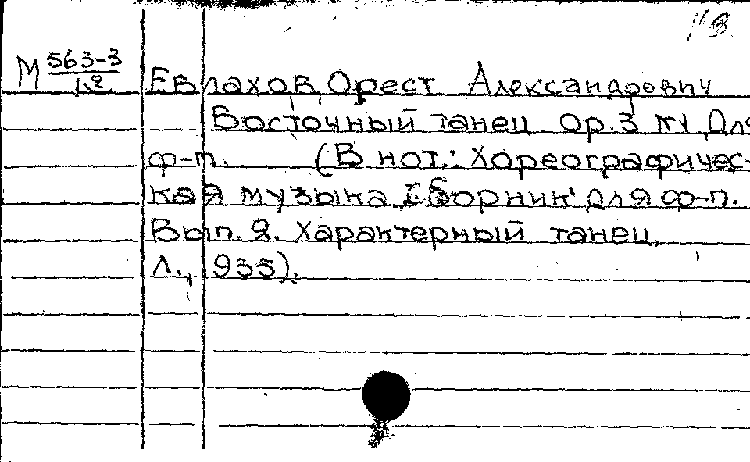 М 563-3
1.2
Евлахов, Орест Александрович
Восточный танец ор. 3 №1 Для
ф-п. (В нот.: Хореографичес-
кая музыка. Сборник для ф-п.
Вып. 2. Характерный танец.
Л., 1935).